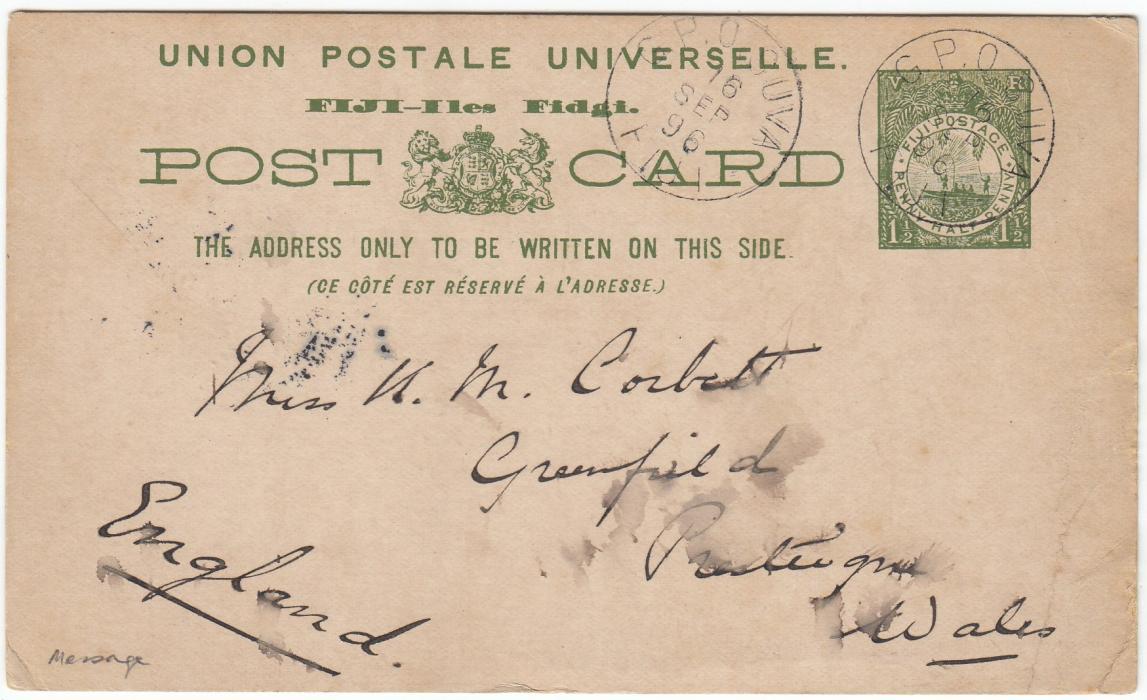 UNION POSTALE UNIVERSELLE.
FIJI–Iles Fidgi.
POST CARD
THE ADDRESS ONLY TO BE WRITTEN ON THIS SIDE.
(CE CÔTÉ EST RÉSERVÉ À L'ADRESSE.)
G.P.O. SUVA
16
SEP
96
FIJI
V R
FIJI POSTAGE
PENNY HALF PENNY
1½ 1½
G.P.O
Miss K. M. Corbett
Greenfield
Presteigne
Wales
England.
Message